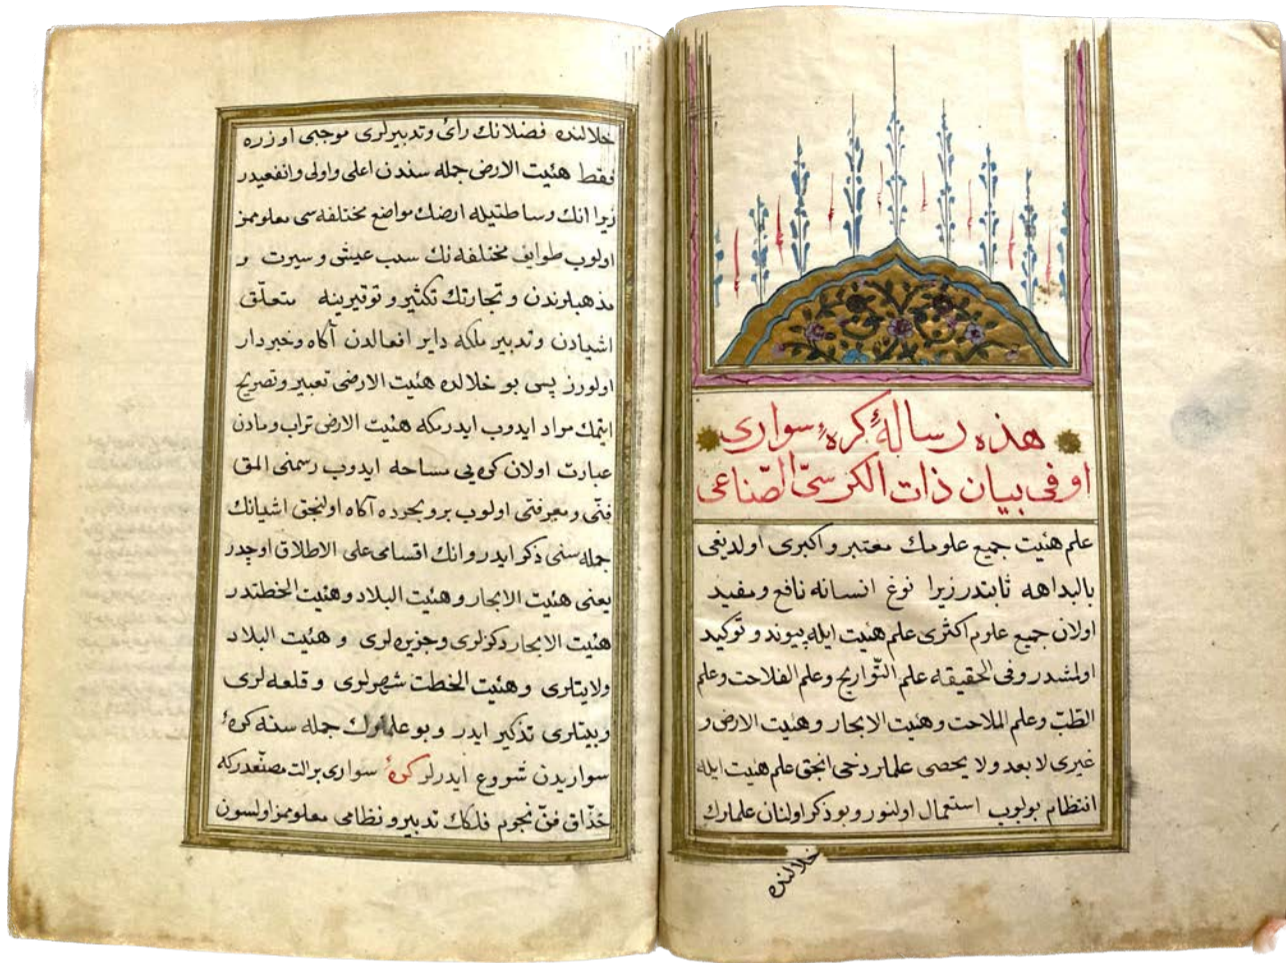 هذه رسالهٔ كرهٔ سوارى
او فى بيان ذات الكرسىّ الصّناعى
علم هئيت جميع علومك معتبر و اكبرى اولديغى
بالبداهه ثابتدر زيرا نوع انسانه نافع و مفيد
اولان جميع علوم اكثرى علم هئيت ايله پيوند و توكيد
اولمشدر و فى الحقيقه علم التّواريخ و علم الفلاحت و علم
الطّبّ و علم الملاحت و هئيت الابحار و هئيت الارض و
غيرى لا يعد و لا يحصى علملر دخى انجق علم هئيت ايله
انتظام بولوب استعمال اولنور و بو ذكر اولنان علملرك
خلالنده
خلالنده فضلانك رائ و تدبيرلرى موجبى اوزره
فقط هئيت الارض جمله سندن اعلى و اولى و انفعيدر
زيرا انك وساطتيله ارضك مواضع مختلفه سى معلوممز
اولوب طوايف مختلفه نك سبب عيشى و سيرت و
مذهبلرندن و تجارتك تكثير و توقيرينه متعلّق
اشيادن و تدبير ملكه داير افعالدن آكاه و خبردار
اولورز پس بو خلالده هئيت الارضى تعبير و تصريح
ايتمك مراد ايدوب ايدرمكه هئيت الارض تراب و مادن
عبارت اولان كره يى مساحه ايدوب رسمنى المق
فنّى و معرفتى اولوب بر و بحرده آكاه اولنجق اشيانك
جمله سنى ذكر ايدر و انك اقسامى على الاطلاق اوچدر
يعنى هئيت الابحار و هئيت البلاد و هئيت الخطتدر
هئيت الابحار دكزلرى و جزيره لرى و هئيت البلاد
ولايتلرى و هئيت الخطت شهرلرى و قلعه لرى
و بيتلرى تذكير ايدر و بو علملرك جمله سنه كرهٔ
سواريدن شروع ايدرلر كرهٔ سوارى بر الت مصنّعدركه
حذّاق فنّ نجوم فلكك تدبير و نظامى معلوممز اولسون